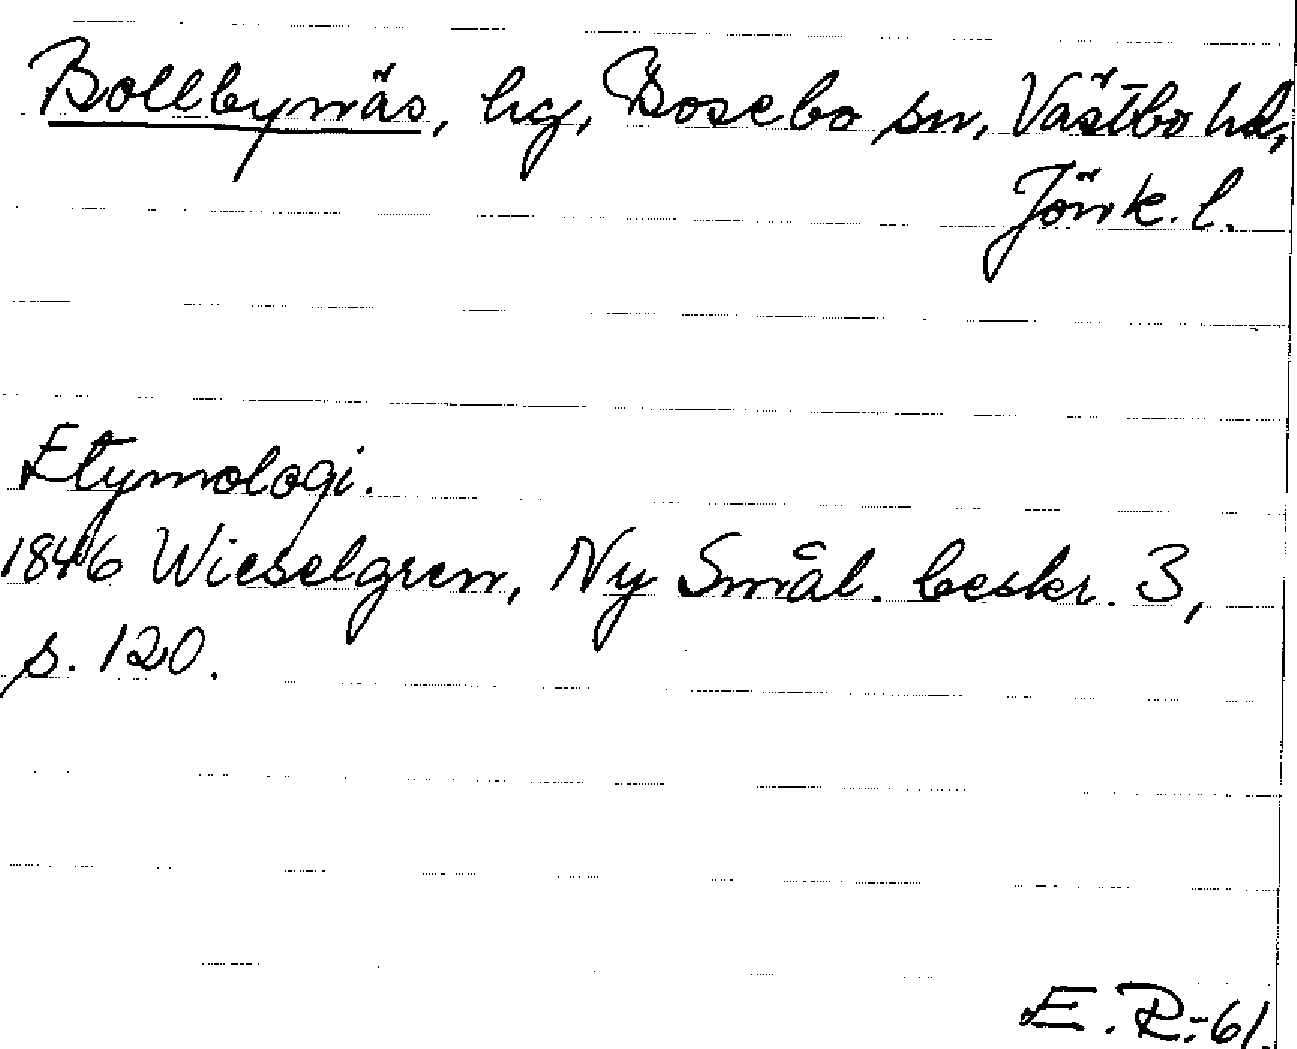 Bollbynäs, hg, Bosebo sn, Västbo hd,
Jönk. l.
Etymologi.
1846 Wieselgren, Ny Smål. beskr. 3,
s. 120.
E. R:-61.